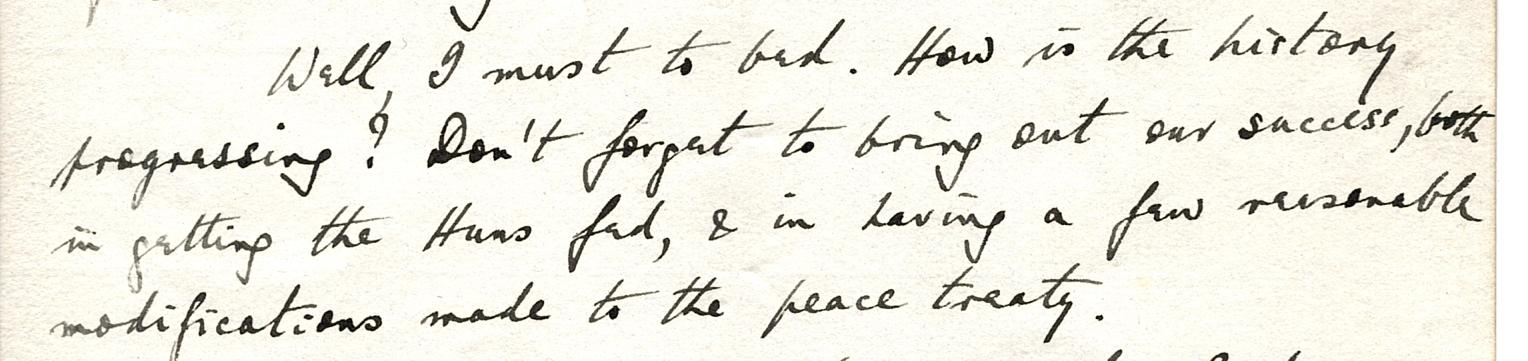 Well, I must to bed. How is the history
progressing? Don't forget to bring out our success, both
in getting the Huns fed, & in having a few reasonable
modifications made to the peace treaty.